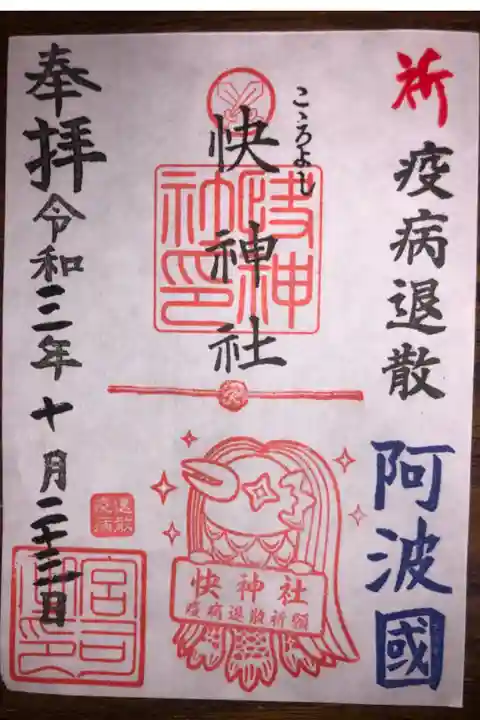 祈
疫病退散
阿波國
こゝろよし
快神社
快神社印
快神社
疫病退散祈願
奉拝
令和三年十月二十三日
退散
疫病
宮司
之印